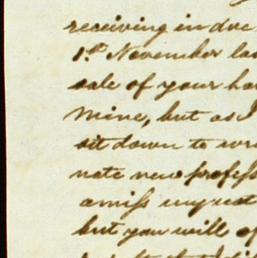 receiving in due
1st November la
sale of your ho
mine, but as I
sit down to wri
nate new profess
amiss my
but you will of